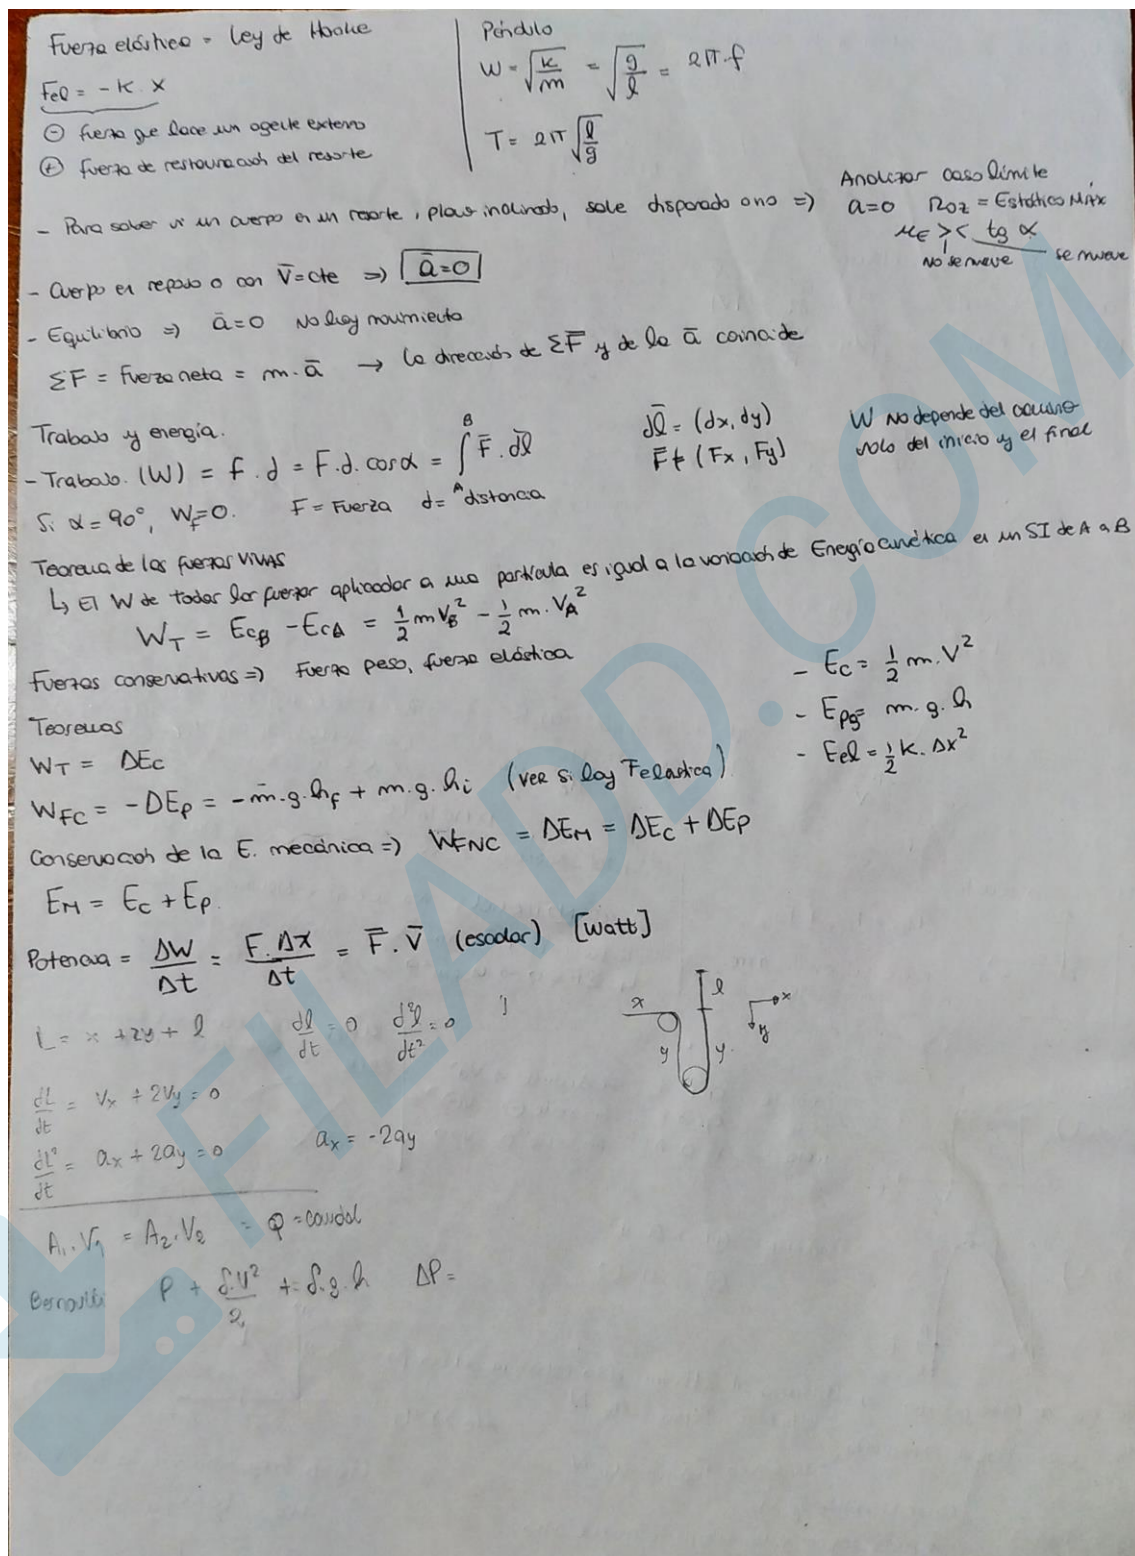 Fuerza elástica = Ley de Hooke
Fel = - K . X
⊖ fuerza que hace un agente externo
⊕ fuerza de restauración del resorte
Péndulo
W = √(K/m) = √(g/l) = 2π.f
T = 2π √(l/g)
- Para saber si un cuerpo en un resorte, plano inclinado, sale disparado o no =>
Analizar caso límite
a=0 Roz = Estático Máx
μE >< tg α
No se mueve se mueve
- Cuerpo en reposo o con V̄=cte => ā=0
- Equilibrio => ā=0 No hay movimiento
ΣF = Fuerza neta = m.ā → la dirección de ΣF̄ y de la ā coincide
Trabajo y energía.
- Trabajo. (W) = f . d = F.d. cosα = ∫ₐᴮ F̄ . dl̄
dl̄ = (dx, dy)
F̄ = (Fx, Fy)
W No depende del camino
solo del inicio y el final
Si α = 90°, WF=0. F = Fuerza d = distancia
Teorema de las fuerzas vivas
↳ El W de todas las fuerzas aplicadas a una partícula es igual a la variación de Energía cinética en un SI de A a B
WT = EcB - EcA = 1/2 m VB² - 1/2 m. VA²
Fuerzas conservativas => Fuerza peso, fuerza elástica
- Ec = 1/2 m. V²
- Epg= m. g. h
- Eel = 1/2 K. Δx²
Teoremas
WT = ΔEc
WFC = -ΔEp = -m.g.hf + m.g.hi (ver si hay Felastica)
Conservación de la E. mecánica => WFNC = ΔEM = ΔEc + ΔEp
EM = Ec + Ep.
Potencia = ΔW/Δt = F.Δx/Δt = F̄ . V̄ (escalar) [Watt]
L = x + 2y + l dl/dt = 0 d²l/dt² = 0
x l x
y y y
dL/dt = Vx + 2Vy = 0
dL²/dt = ax + 2ay = 0 ax = -2ay
A1. V1 = A2. V2 = Q = caudal
Bernoulli P + δ.V²/2 + δ.g.h ΔP =
FILADD.COM